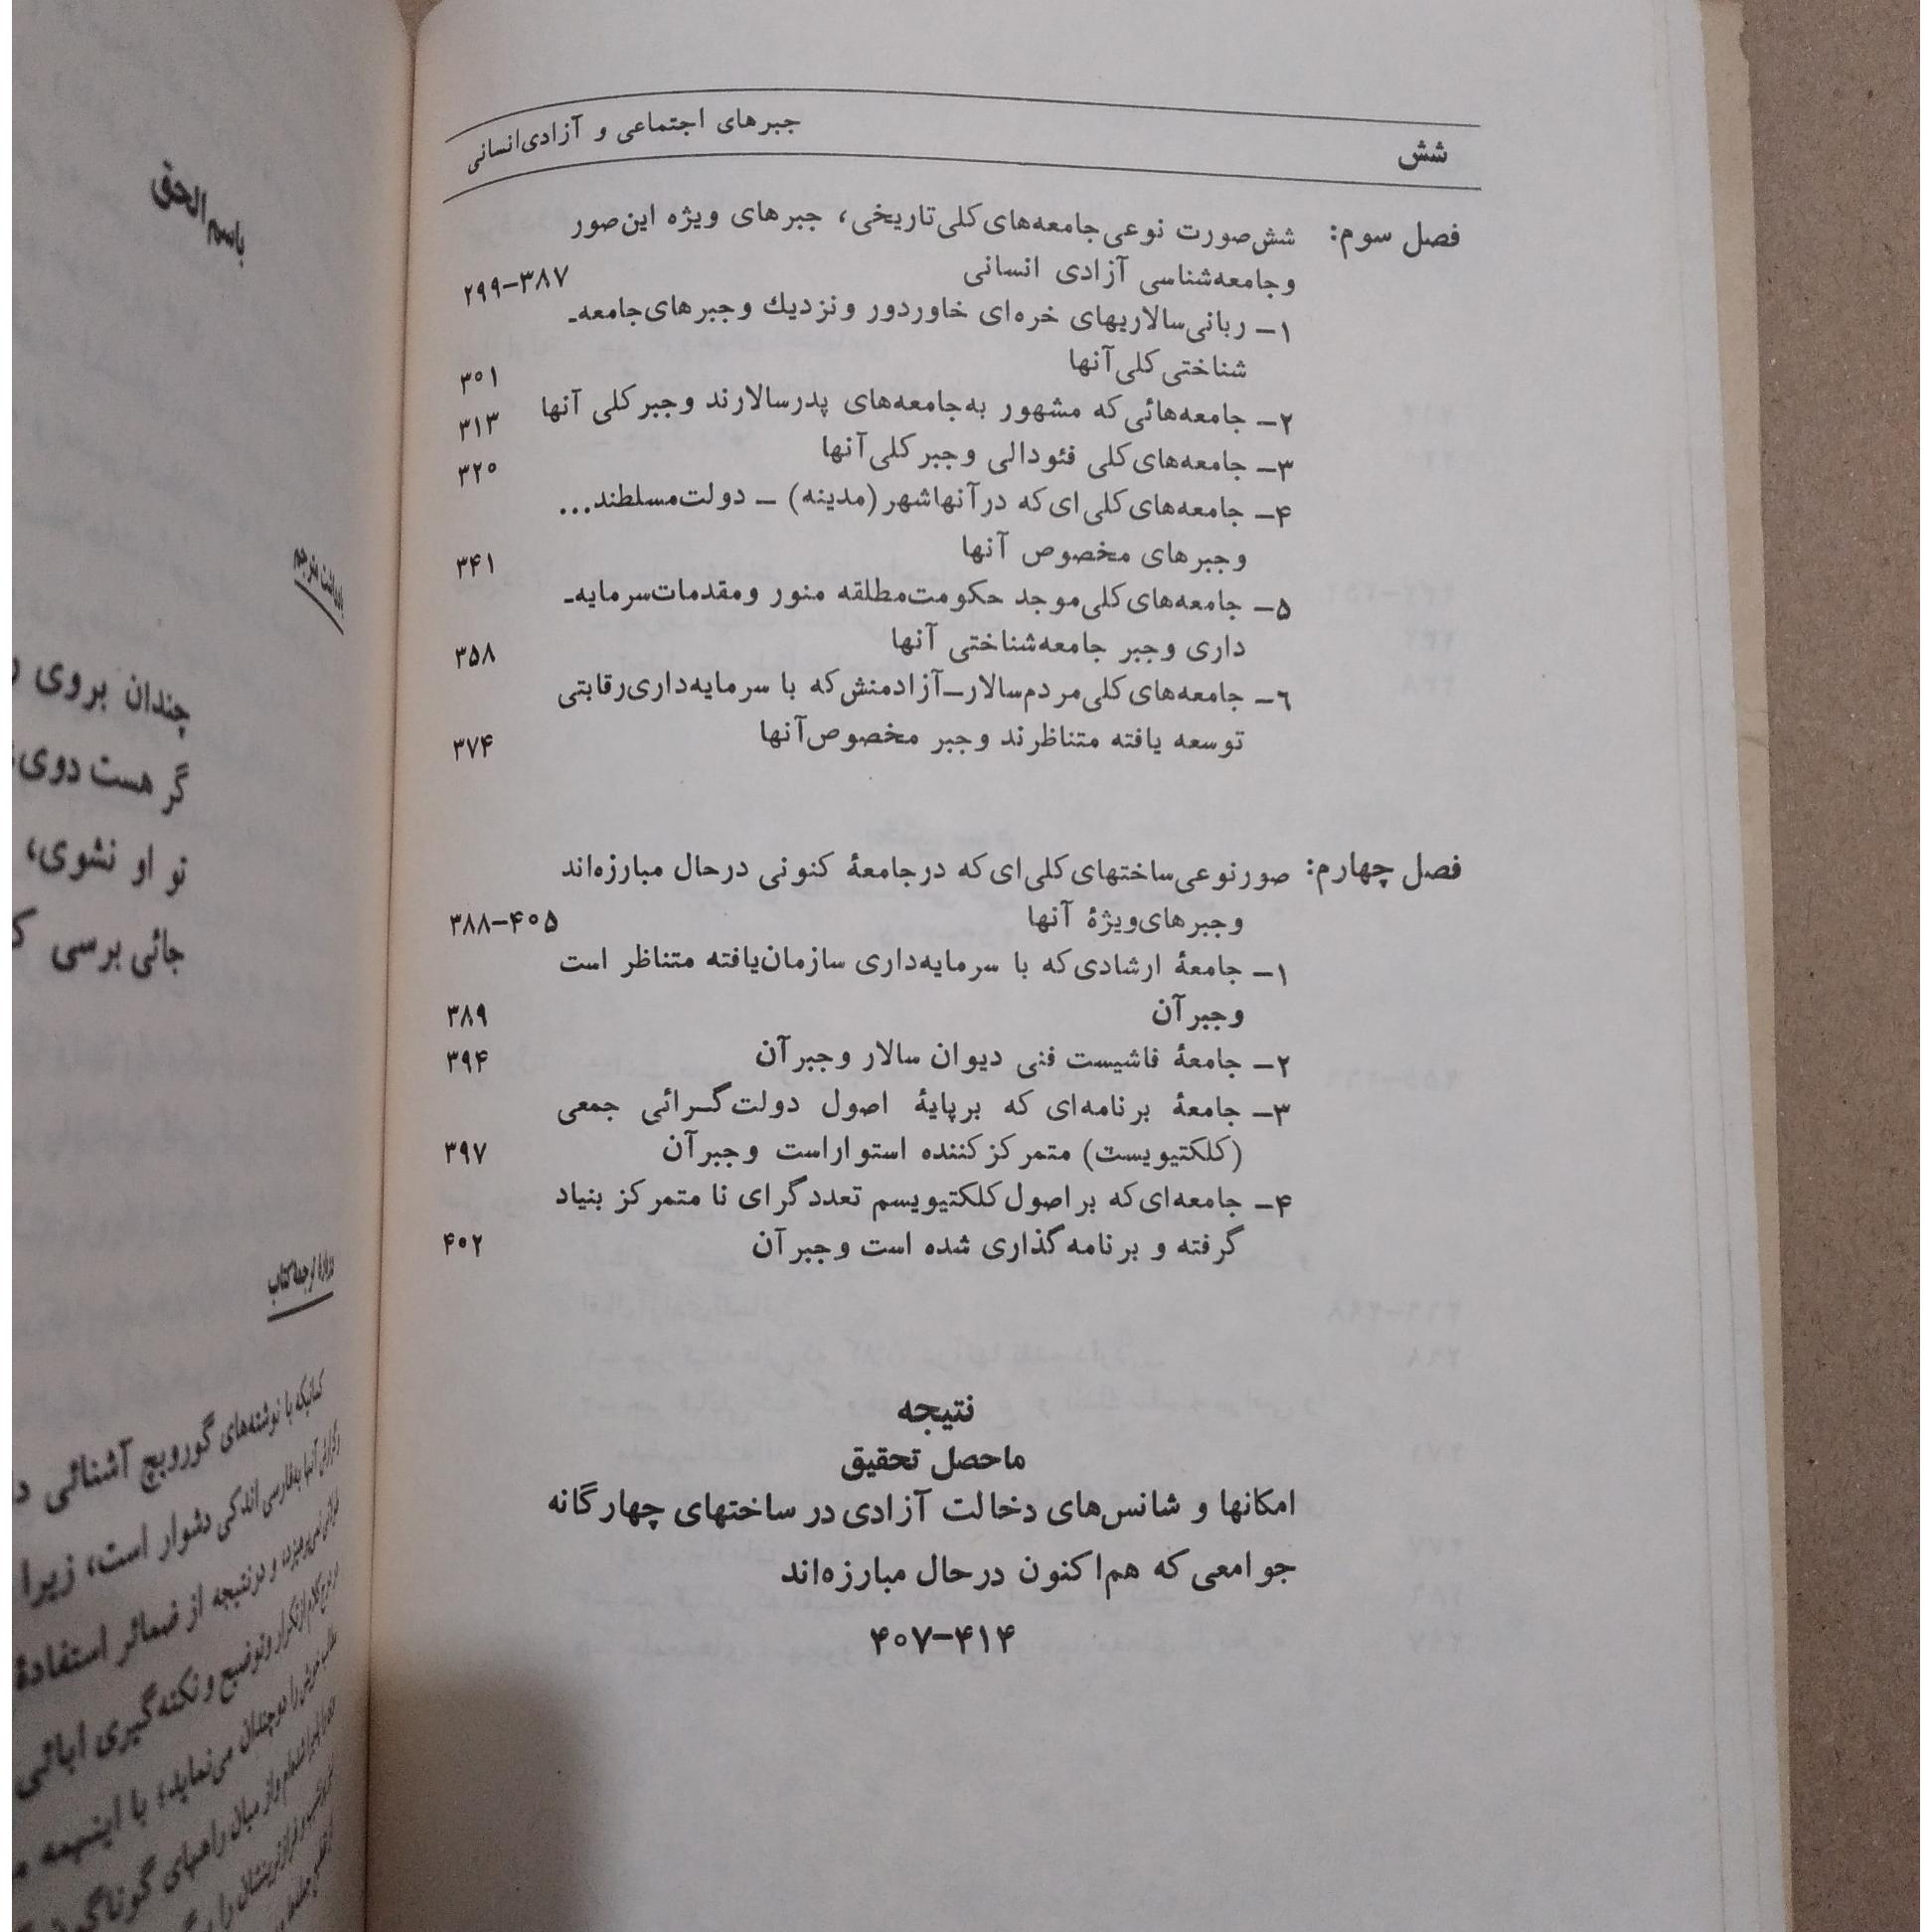 شش
جبرهای اجتماعی و آزادی‌انسانی
فصل سوم: شش‌صورت نوعی‌جامعه‌های‌کلی‌تاریخی، جبرهای ویژه این‌صور
وجامعه‌شناسی آزادی انسانی ۲۹۹–۳۸۷
۱– ربانی‌سالاریهای خره‌ای خاوردور ونزدیك وجبرهای‌جامعه‌-
شناختی‌کلی‌آنها ۳۰۱
۲– جامعه‌هائی‌که مشهور به‌جامعه‌های پدرسالارند وجبرکلی آنها ۳۱۳
۳– جامعه‌های‌کلی فئودالی وجبرکلی‌آنها ۳۲۰
۴– جامعه‌های‌کلی‌ای‌که درآنهاشهر (مدینه) – دولت‌مسلطند...
وجبرهای مخصوص آنها ۳۴۱
۵– جامعه‌های‌کلی‌موجد حکومت‌مطلقه منور ومقدمات‌سرمایه‌-
داری وجبر جامعه‌شناختی آنها ۳۵۸
۶– جامعه‌های‌کلی‌مردم‌سالار–آزادمنش‌که با سرمایه‌داری‌رقابتی
توسعه یافته متناظرند وجبر مخصوص‌آنها ۳۷۴
فصل چهارم: صورنوعی‌ساختهای‌کلی‌ای‌که درجامعهٔ کنونی درحال مبارزه‌اند
وجبرهای‌ویژهٔ آنها ۳۸۸–۴۰۵
۱– جامعهٔ ارشادی‌که با سرمایه‌داری سازمان‌یافته متناظر است
وجبرآن ۳۸۹
۲– جامعهٔ فاشیست فنی دیوان سالار وجبرآن ۳۹۴
۳– جامعهٔ برنامه‌ای که برپایهٔ اصول دولت‌گرائی جمعی
(کلکتیویست) متمرکزکننده استواراست وجبرآن ۳۹۷
۴– جامعه‌ای‌که براصول‌کلکتیویسم تعددگرای نا متمرکز بنیاد
گرفته و برنامه‌گذاری شده است وجبرآن ۴۰۲
نتیجه
ماحصل تحقیق
امکانها و شانس‌های دخالت آزادی در ساختهای چهارگانه
جوامعی که هم‌اکنون درحال مبارزه‌اند
۴۰۷–۴۱۴
باسم‌الحق
چندان بروی
گر هست دوی
تو او نشوی،
جائی برسی
کسانیکه با نوشته‌های گورویچ آشنائی
آنها بفارسی اندکی دشوار است، زیرا
و درنتیجه از ضمائر استفادهٔ
ازتکرار وتوضیح و نکته‌گیری ابائی
را دوچندان می‌نماید؛ با اینهمه
از میان راههای